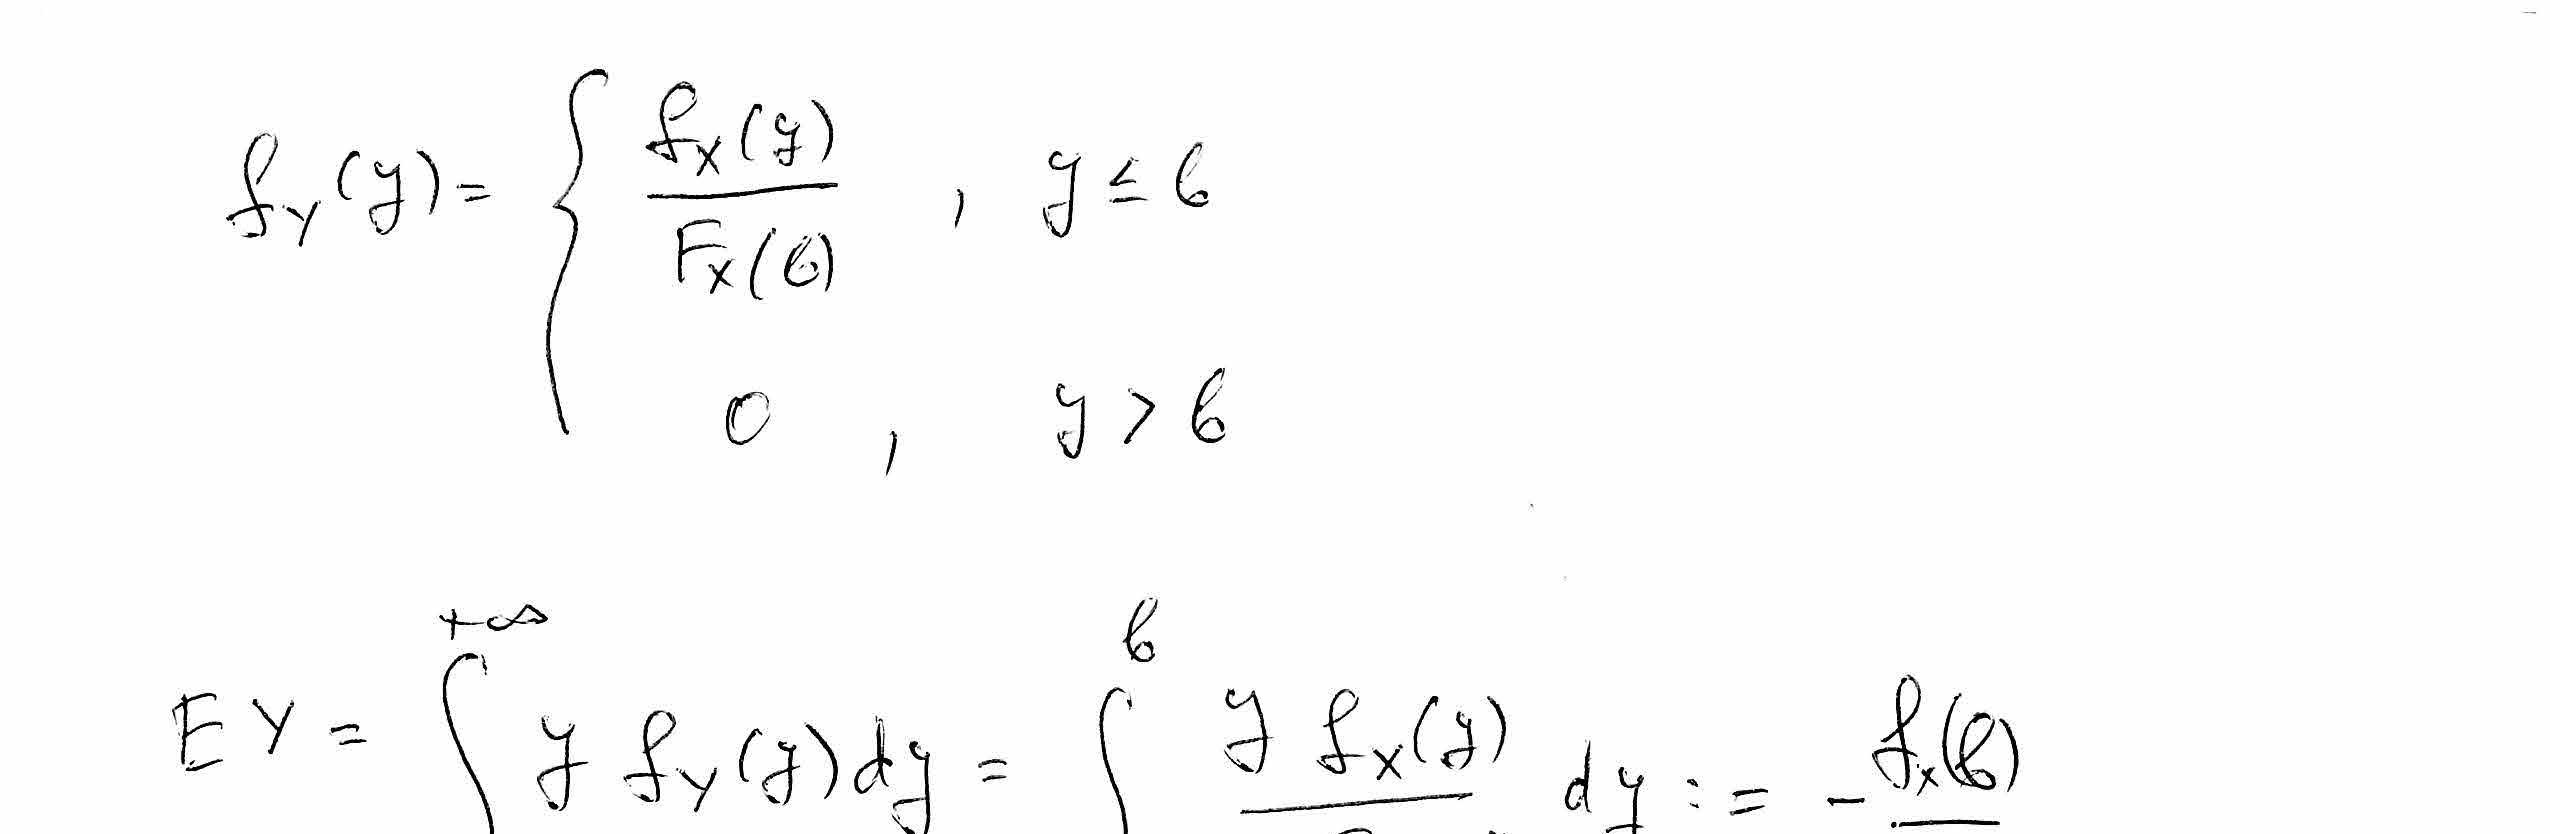 f_Y(y) = { f_X(y) / F_X(b) , y ≤ b
0 , y > b
EY = ∫^{+∞} y f_Y(y) dy = ∫^{b} y f_X(y) dy := - f_X(b)